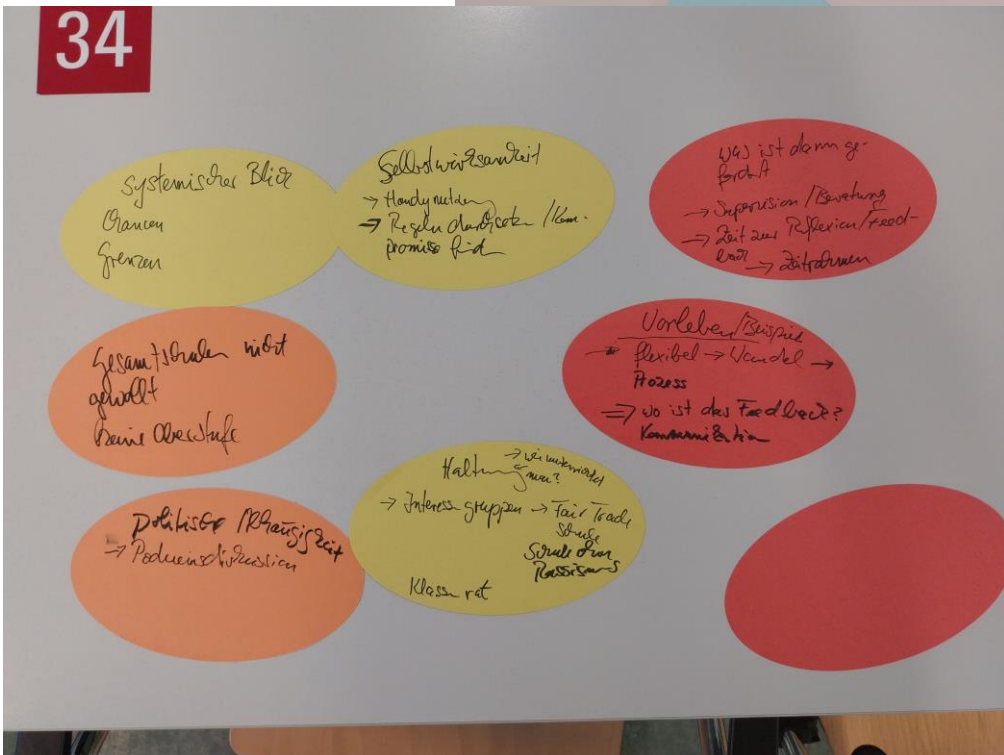 34
Systemischer Blick
Chancen
Grenzen
Selbstwirksamkeit
→ Handynutzen
→ Regeln durchsetzen / Kom-
promisse find
Was ist dann ge-
fordert
→ Supervision / Beratung
→ Zeit zur Reflexion / Feed-
back → Zeitrahmen
Gesamtschulen nicht
gewollt
keine Oberstufe
Vorleben / Beispiel
→ flexibel → Wandel →
Prozess
⇒ wo ist das Feedback?
Kommunikation
politische Abhängigkeit
→ Podiumsdiskussion
Haltung → wie unterrichtet
man?
→ Interessgruppen → Fair Trade
Schule
Schule ohne
Rassismus
Klassenrat